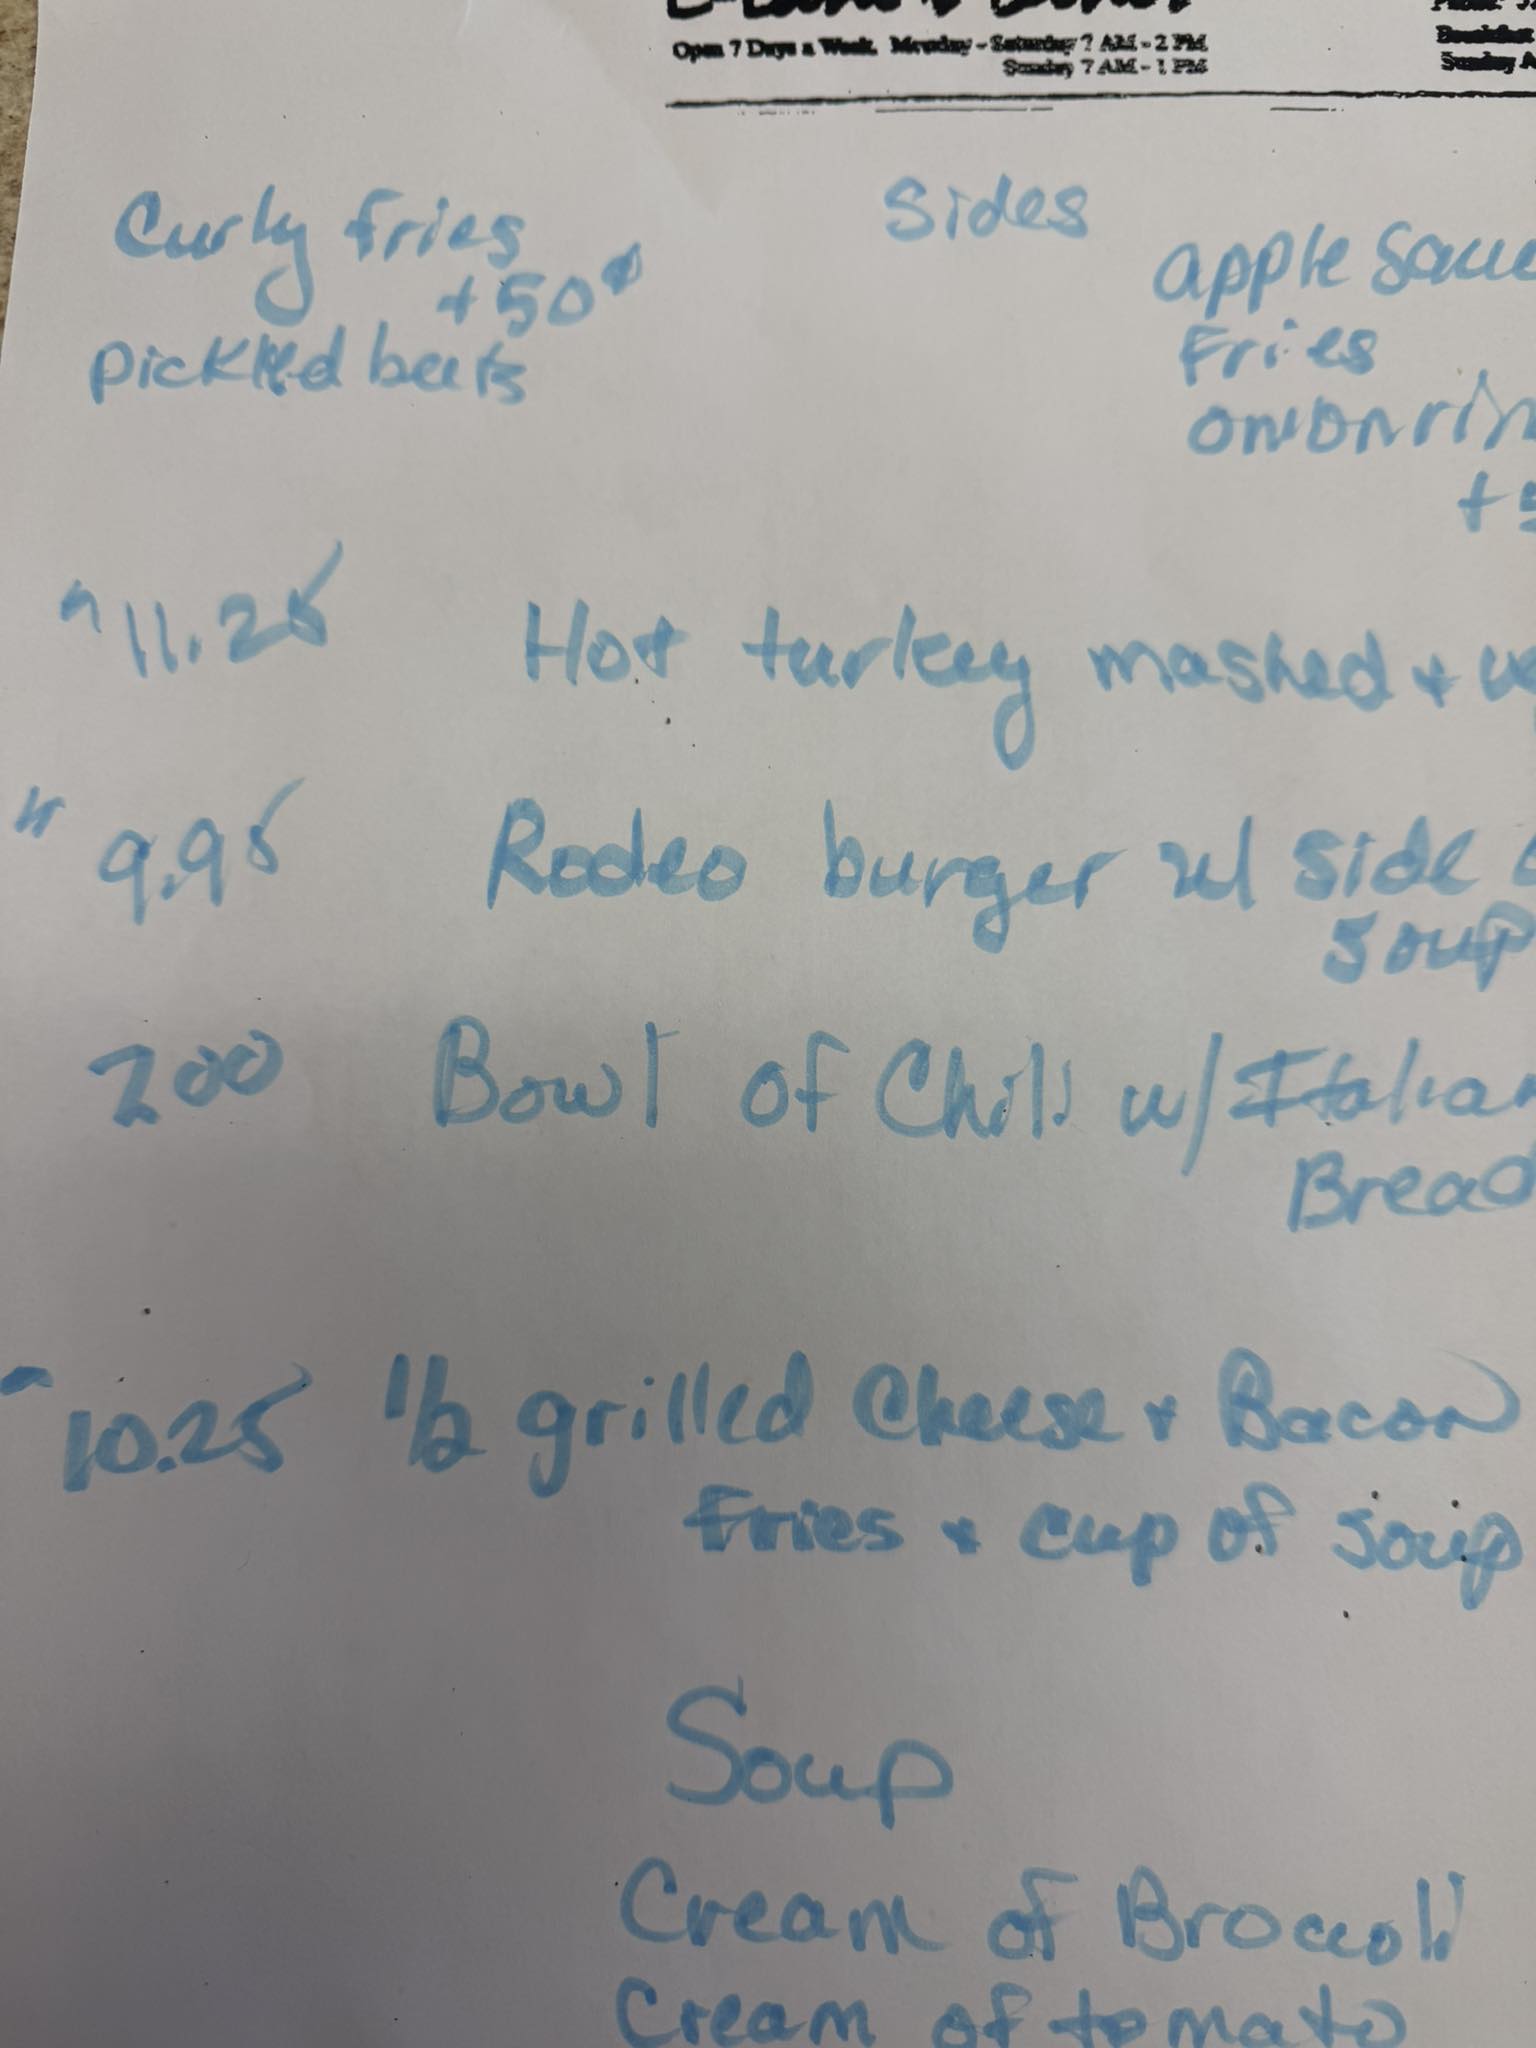 Open 7 Days a Week. Monday - Saturday 7 AM - 2 PM
Sunday 7 AM - 1 PM
Breakfast
Sunday
Curly Fries
+50¢
Pickled beets
Sides
apple Sauc
Fries
onion rin
+5
11.25 Hot turkey mashed + ve
9.95 Rodeo burger w/ side
soup
7.00 Bowl of Chili w/ Italian
Bread
10.25 1/2 grilled Cheese + Bacon
Fries + cup of soup
Soup
Cream of Broccoli
Cream of tomato